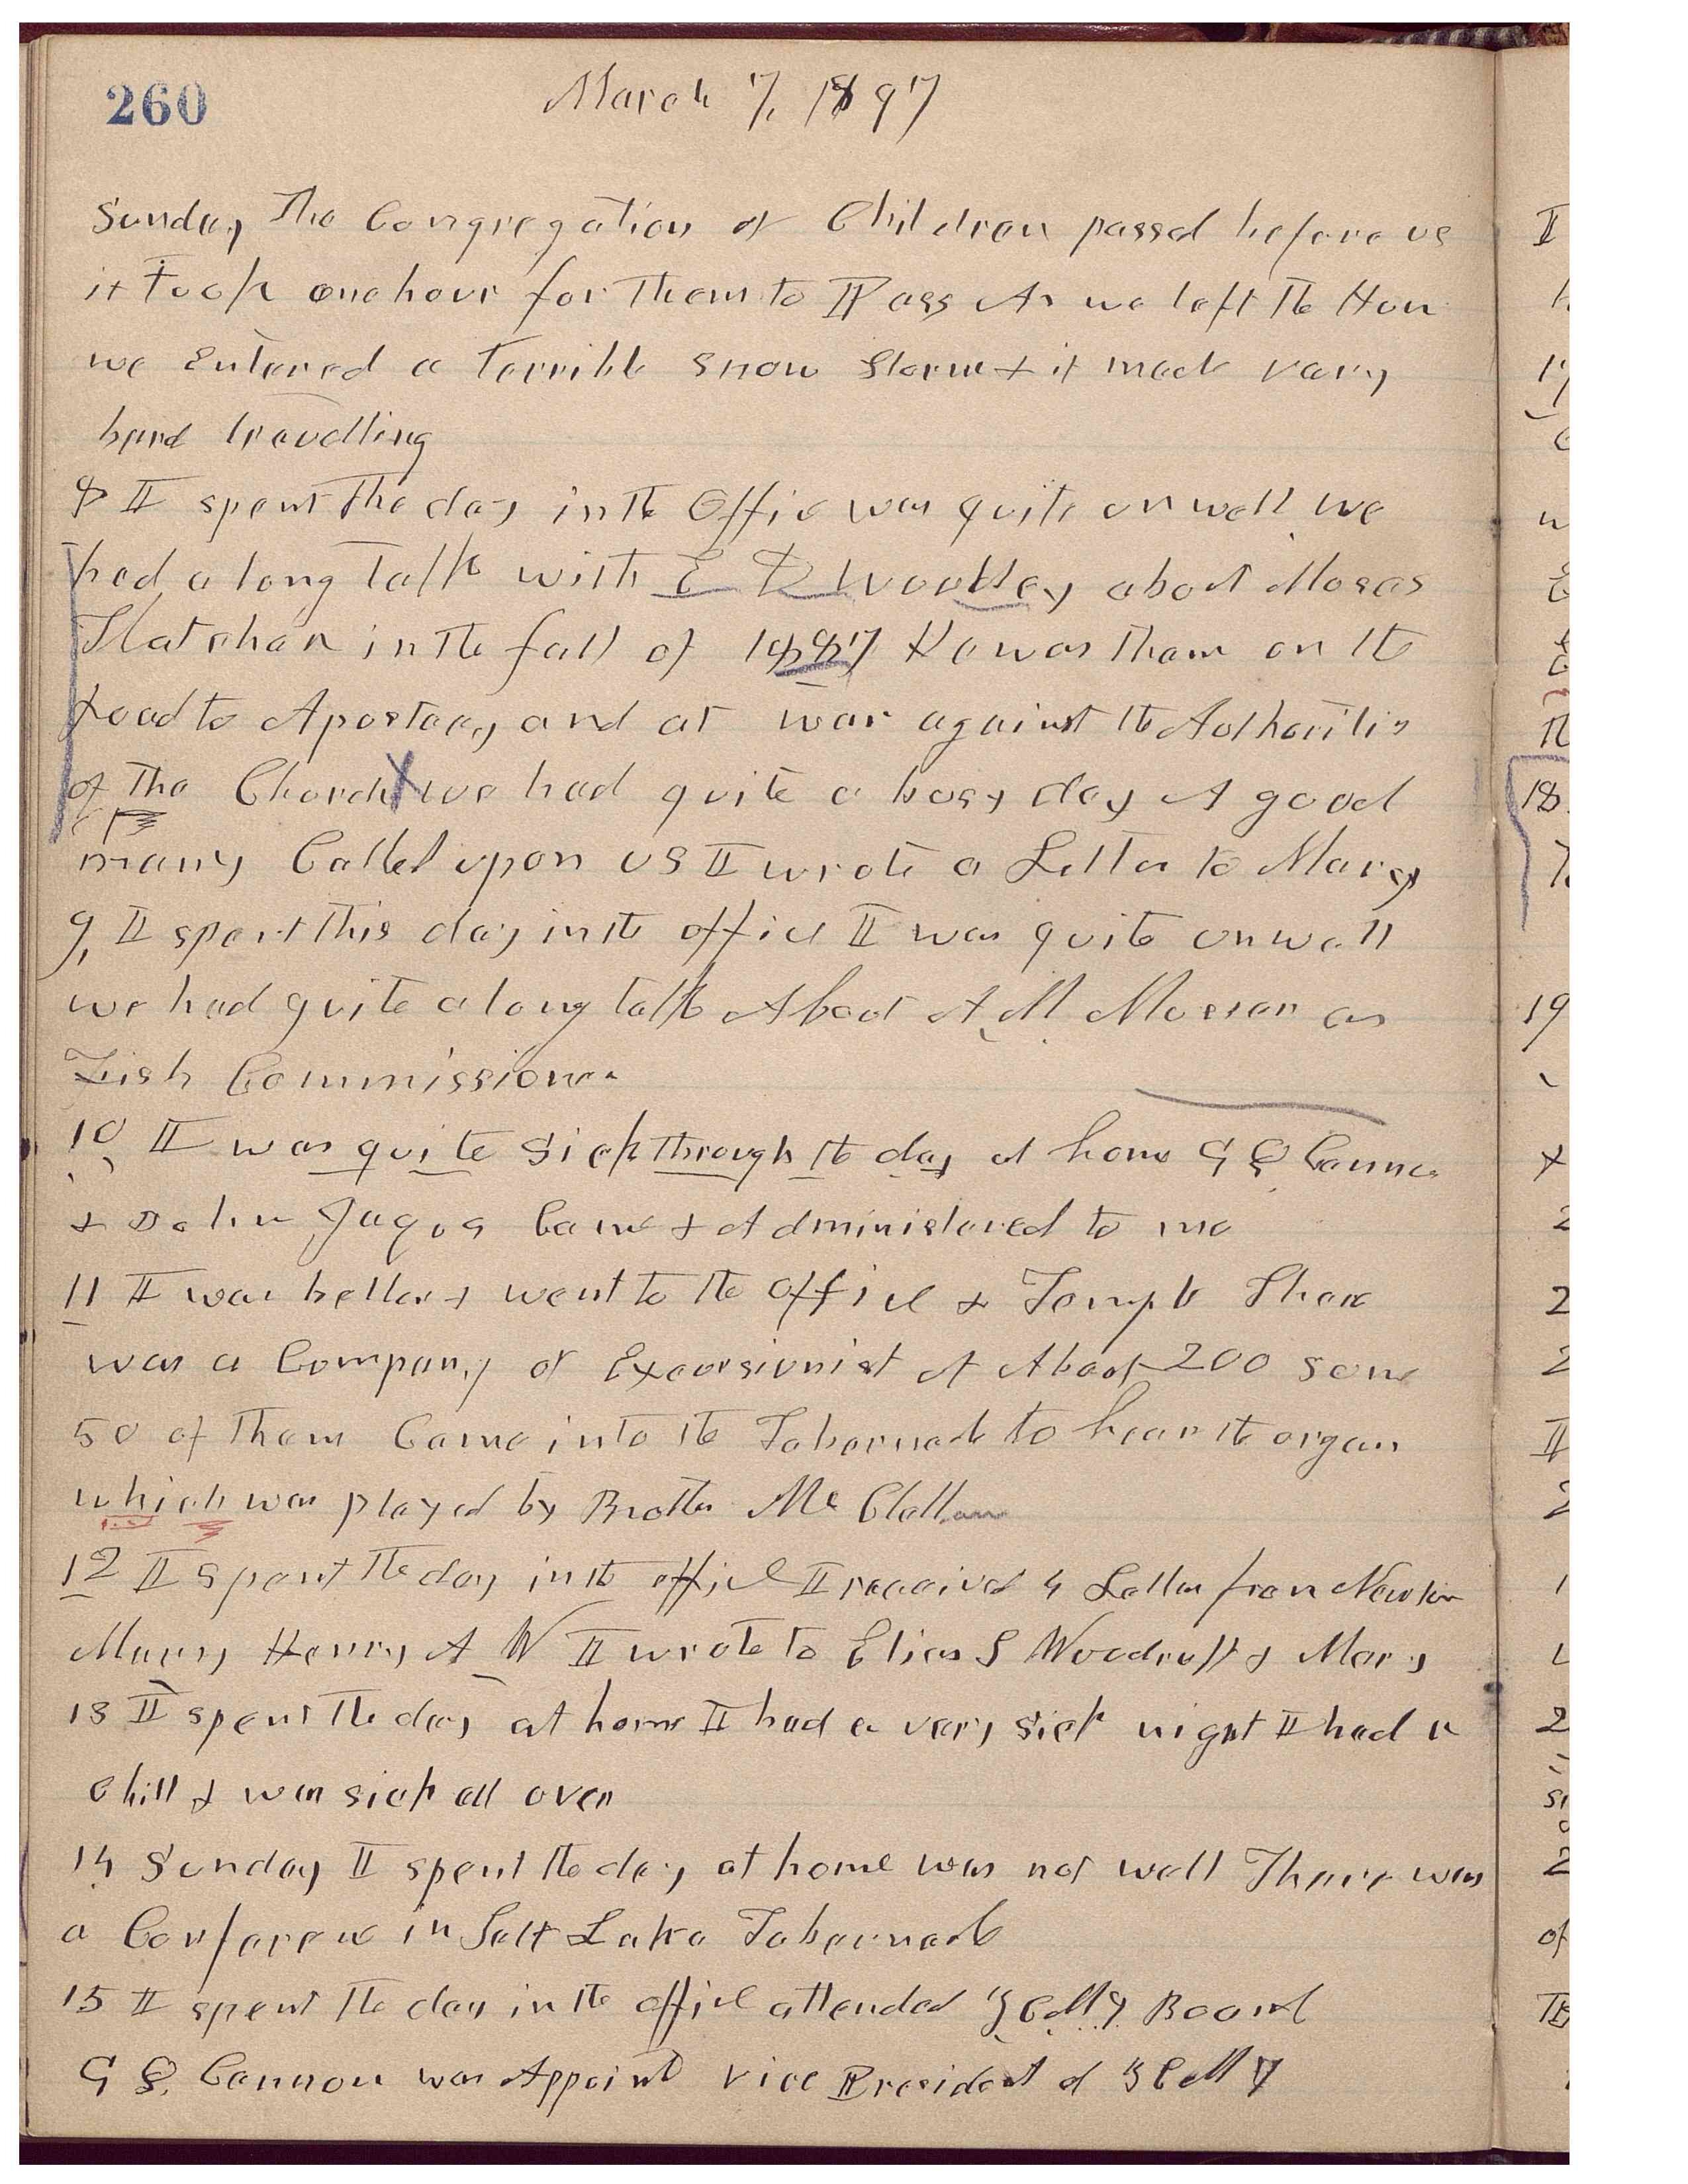 260
March 7, 1897
Sunday The Congregation of Children passed before us
it Took one hour for Them to Pass As we left the Hou
we Entered a terrible snow Storm & it made vary
hard travelling
8 I spent the day in the Office was quite unwell we
had a long talk with E D Woolley about Moses
Thatcher in the fall of 1887 He was tham on the
road to Apostacy and at war against the Authoritis
of The Church X we had quite a busy day A good
many Called upon us I wrote a Letter to Mary
9, I spent this day in the office I was quite unwell
we had quite a long talk About A M Musser as
Fish Commissioner
10 I was quite Sick through the day at home G Q Cannon
& John Jaques Came & Administered to me
11 I was better & went to the office & Temple There
was a Company of Excursionist of About 200 some
50 of them Came into the Tabernacle to hear the organ
which was played by Brother McClellan
12 I spent the day in the office I received 4 Letter from Newton
Mary Henry A W I wrote to Elias S Woodruff & Mary
13 I spent the day at home I had a vary sick night I had a
chill & was sick all over
14 Sunday I spent the day at home was not well There was
a Conference in Salt Lake Tabernacle
15 I spent the day in the office attended ZCMI Board
G Q. Cannon was Appoint vice President of ZCMI
18
19
of